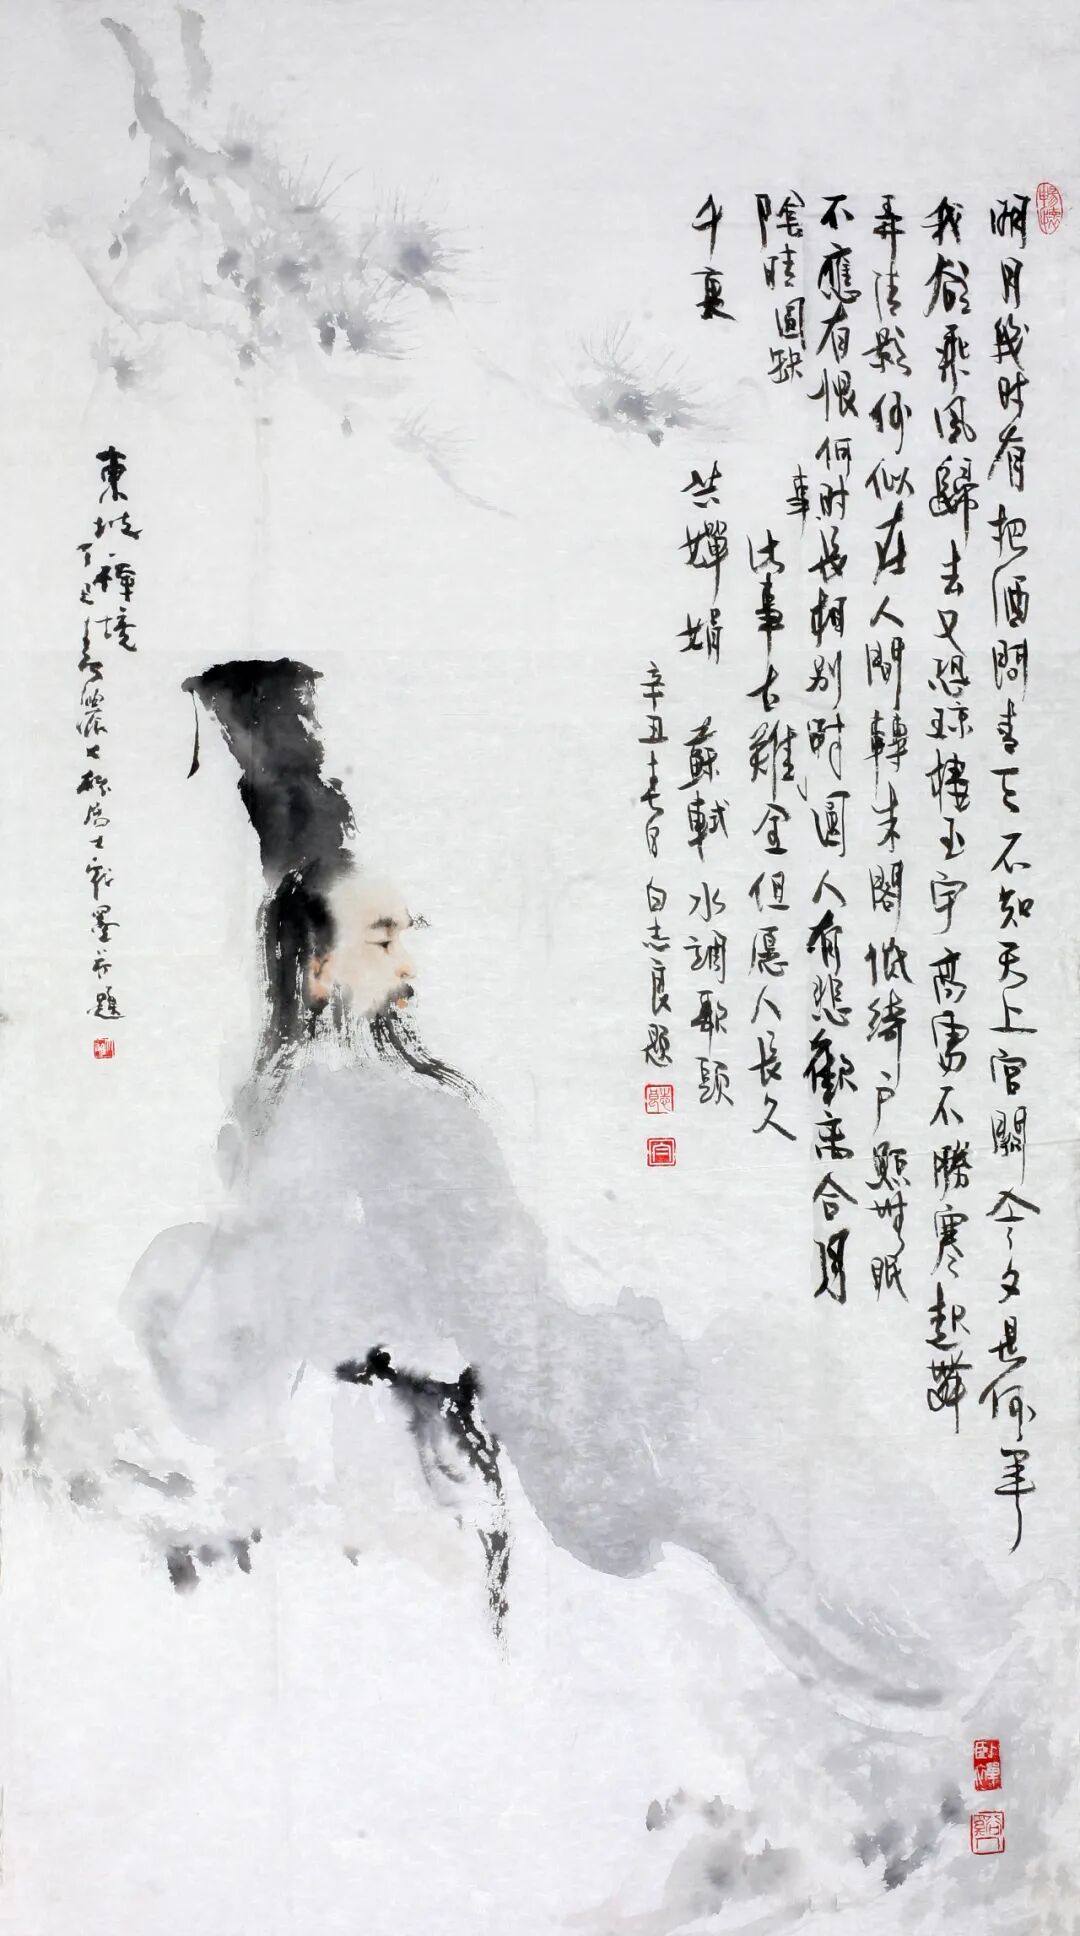 暢懷
明月幾时有把酒問青天不知天上宮闕今夕是何年
我欲乘風歸去又恐琼樓玉宇高處不勝寒起舞
弄清影何似在人間轉朱閣低綺户照無眠
不應有恨何时長相别时圓人有悲歡离合月
事
陰晴圓缺 此事古難全但愿人長久
千裏 共嬋娟 蘇軾水調歌頭
辛丑春日白志良题
東坡禪境
墨并題